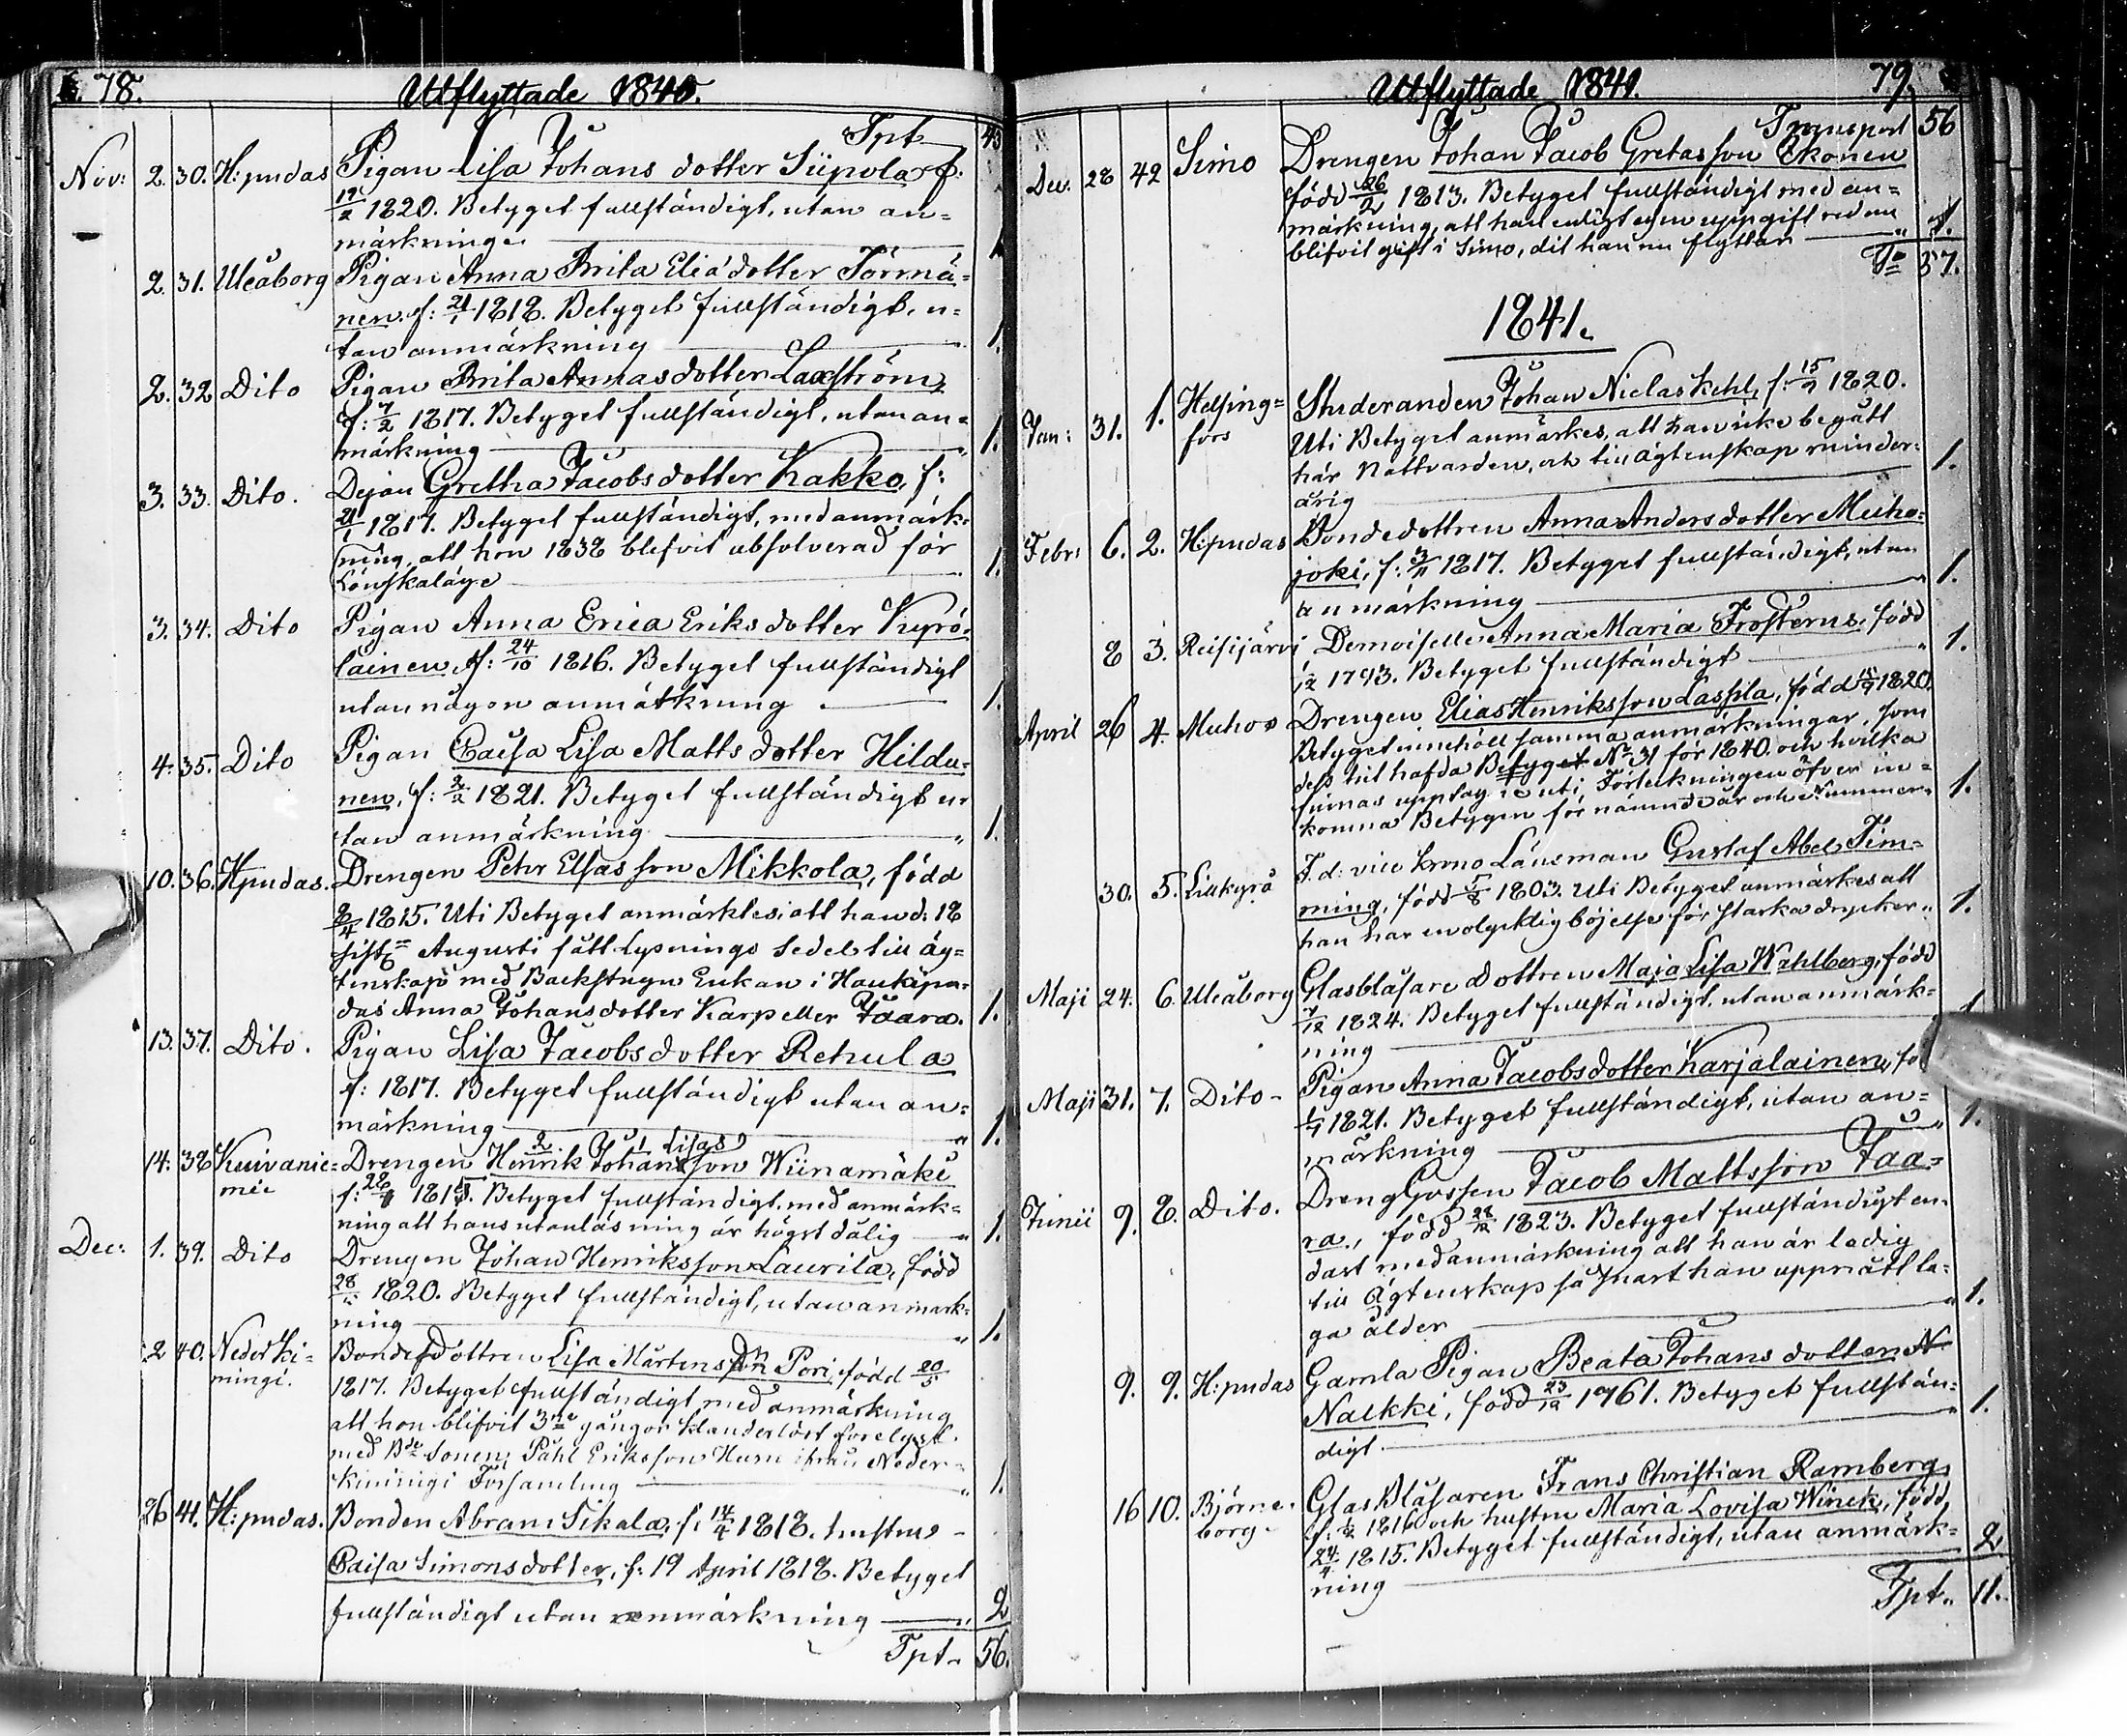 78.
Utflyttade 1840.
Tpt 43
Nov: 2. 30. H:pudas Pigan Lisa Johans dotter Siipola f.
19/2 1820. Betyget fullständigt, utan an=
märkninge. 1
2. 31. Uleåborg Pigan Anna Brita Elia dotter Törmä=
nen. f: 21/1 1818. Betyget fullständigt, u=
tan anmärkning 1.
2. 32 Dito Pigan Brita Annasdotter Laxström,
f: 7/2 1817. Betyget fullständigt, utan an=
märkning 1.
3. 33. Dito. Dejan Gretha Jacobsdotter Kakko, f:
21/1 1817. Betyget fullständigt, med anmärk=
ning, att hon 1838 blifvit absolverad för
Lönskaläge 1.
3. 34. Dito Pigan Anna Erica Eriksdotter Kyrö=
lainen, f: 24/10 1816. Betyget fullständigt
utan någon anmärkning 1.
4. 35. Dito Pigan Caisa Lisa Mattsdotter Hildu=
nen, f: 2/2 1821. Betyget fullständigt u=
tan anmärkning 1.
10. 36. H:pudas. Drengen Petter Elsasson Mikkola, född
8/4 1815. Uti Betyget anmärktes, att han d. 18
sistl. Augusti fått Lysnings Sedel till äg=
tenskap med Backstugu Enkan i Haukipu=
das Anna Johansdotter Karp eller Taara. 1.
13. 37. Dito. Pigan Lisa Jacobsdotter Rehula
f: 1817. Betyget fullständigt utan an=
märkning 1.
14. 38 Kuivanie=
mie
Lisas
Drengen Henrik Johansson Wiinamäki
f: 28/4 1815. Betyget fullständigt, med anmärk=
ning att hans utanläsning är högst dålig 1.
Dec: 1. 39. Dito Drengen Johan Henriksson Laurila, född
28/5 1820. Betyget fullständigt, utan anmärk=
ning 1.
2 40. Neder Ki=
mingi.
Bondedottren Lisa Mårtens Dr Pori, född 20/5
1817. Betyget fullständigt med anmärkning
att hon blifvit 3ne gångor klanderlöst förelyst
med Bde Sonen Påhl Eriksson Hurn ifrån Neder=
kimingi Församling 1.
26 41. H:pudas. Bonden Abram Sikala, f. 14/4 1818. hustru
Caisa Simonsdotter, f: 19 April 1818. Betyget
fullständigt utan anmärkning 2
Tpt. 56.
Utflyttade 1841. 79.
Transport 56
Dec. 28 42 Simo Drengen Johan Jacob Gretasson Ekonen
född 26/2 1813. Betyget fullständigt med an=
märkning, att han enligt egen uppgift redan
blifvit gift i Simo, dit han nu flyttar 1.
Sa 57.
1841.
Jan: 31. 1. Helsing=
fors
Studeranden Johan Niclas Kehl, f: 15/9 1820.
Uti Betyget anmärkes, att han icke begått
här Nattvarden, och till ägtenskap minder=
årig 1.
Febr: 6. 2. H:pudas Bondedottren Anna Andersdotter Muho=
joki, f: 3/11 1817. Betyget fullständigt, utan
anmärkning 1.
8 3. Reisijärvi Demoiselle Anna Maria Frosterus, född
1/12 1793. Betyget fullständigt 1.
April 26 4. Muhos Drengen Elias Henriksson Lassila, född 15/9 1820
Betyget innehöll samma anmärkningar, som
dess hit hafda Betyget No 31 för 1840. och hvilka
finnas upptagne uti Förteckningen öfver in=
komma Betygen för nämnde år och Nummer 1.
30. 5. Lillkyrå F. d. vice Krono Länsman Gustaf Abel Tim=
ming, född 5/8 1803. Uti Betyget anmärkes att
han har en olycklig böjelse för starka drycker 1.
Maji 24. 6. Uleåborg Glasblåsare dottren Maja Lisa Wahlberg, född
7/12 1824. Betyget fullständigt, utan anmärk=
ning 1
Maji 31. 7. Dito - Pigan Anna Jacobsdotter Karjalainen, fö
1/4 1821. Betyget fullständigt, utan an=
märkning 1.
Junii 9. 8. Dito. Dreng Gossen Jacob Mattsson Taa=
ra, född 28/12 1823. Betyget fullständigt en=
dast med anmärkning att han är ledig
till Ägtenskap så snart han uppnått la=
ga ålder 1.
9. 9. H:pudas Gamla Pigan Beata Johans dotter N
Nalkki, född 23/12 1761. Betyget fullstän=
digt. 1.
16 10. Björne=
borg.
Glas Blåsaren Frans Christian Ramberg,
f. 1/2 1816 och hustru Maria Lovisa Winck, född
24/4 1815. Betyget fullständigt, utan anmärk=
ning 2
Tpt. 11.